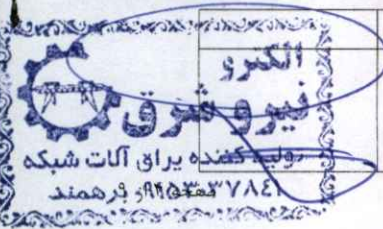 الکترو
نیرو شرق
تولید کننده یراق آلات شبکه
فرهمند